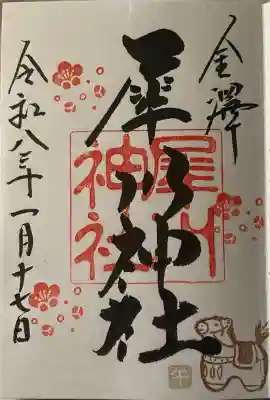 金澤
犀川神社
犀川
神社
令和八年一月十七日
午